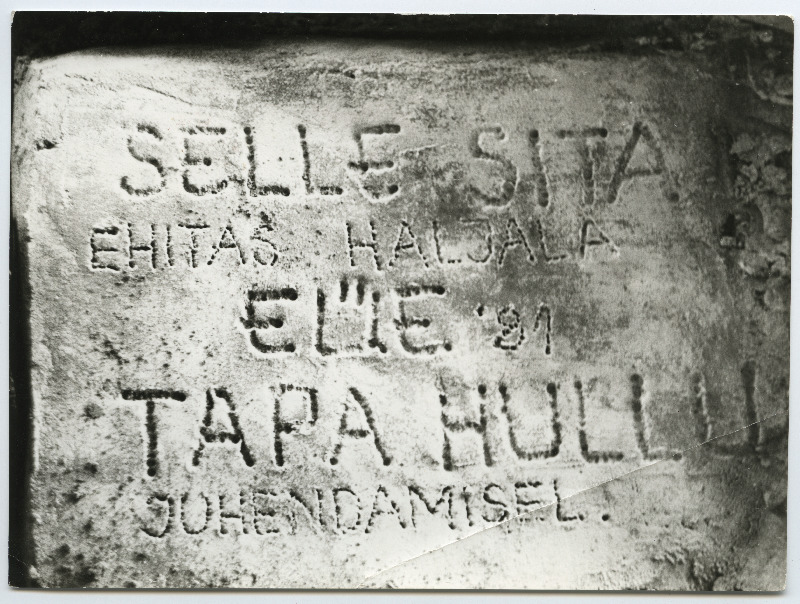 SELLE SITA
EHITAS HALJALA
ELÜE '91
TAPA HULLU
JUHENDAMISEL.